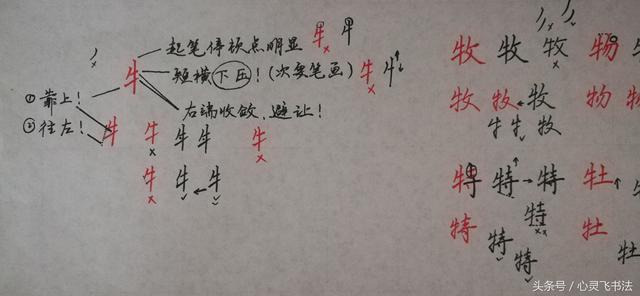 起笔停顿点明显 牛 牛
牛 短横下压！(次要笔画) 牛 牛
①靠上！
右端收敛、避让！
②往左！ 牛 牛 牛 牛 牛
牛 牛 牛
牧 牧 牧 物
牧 牧 牧 物 物
牛 牛 牧
特 特 特 牡
特 特 牡
特 特 牡
头条号 / 心灵飞书法